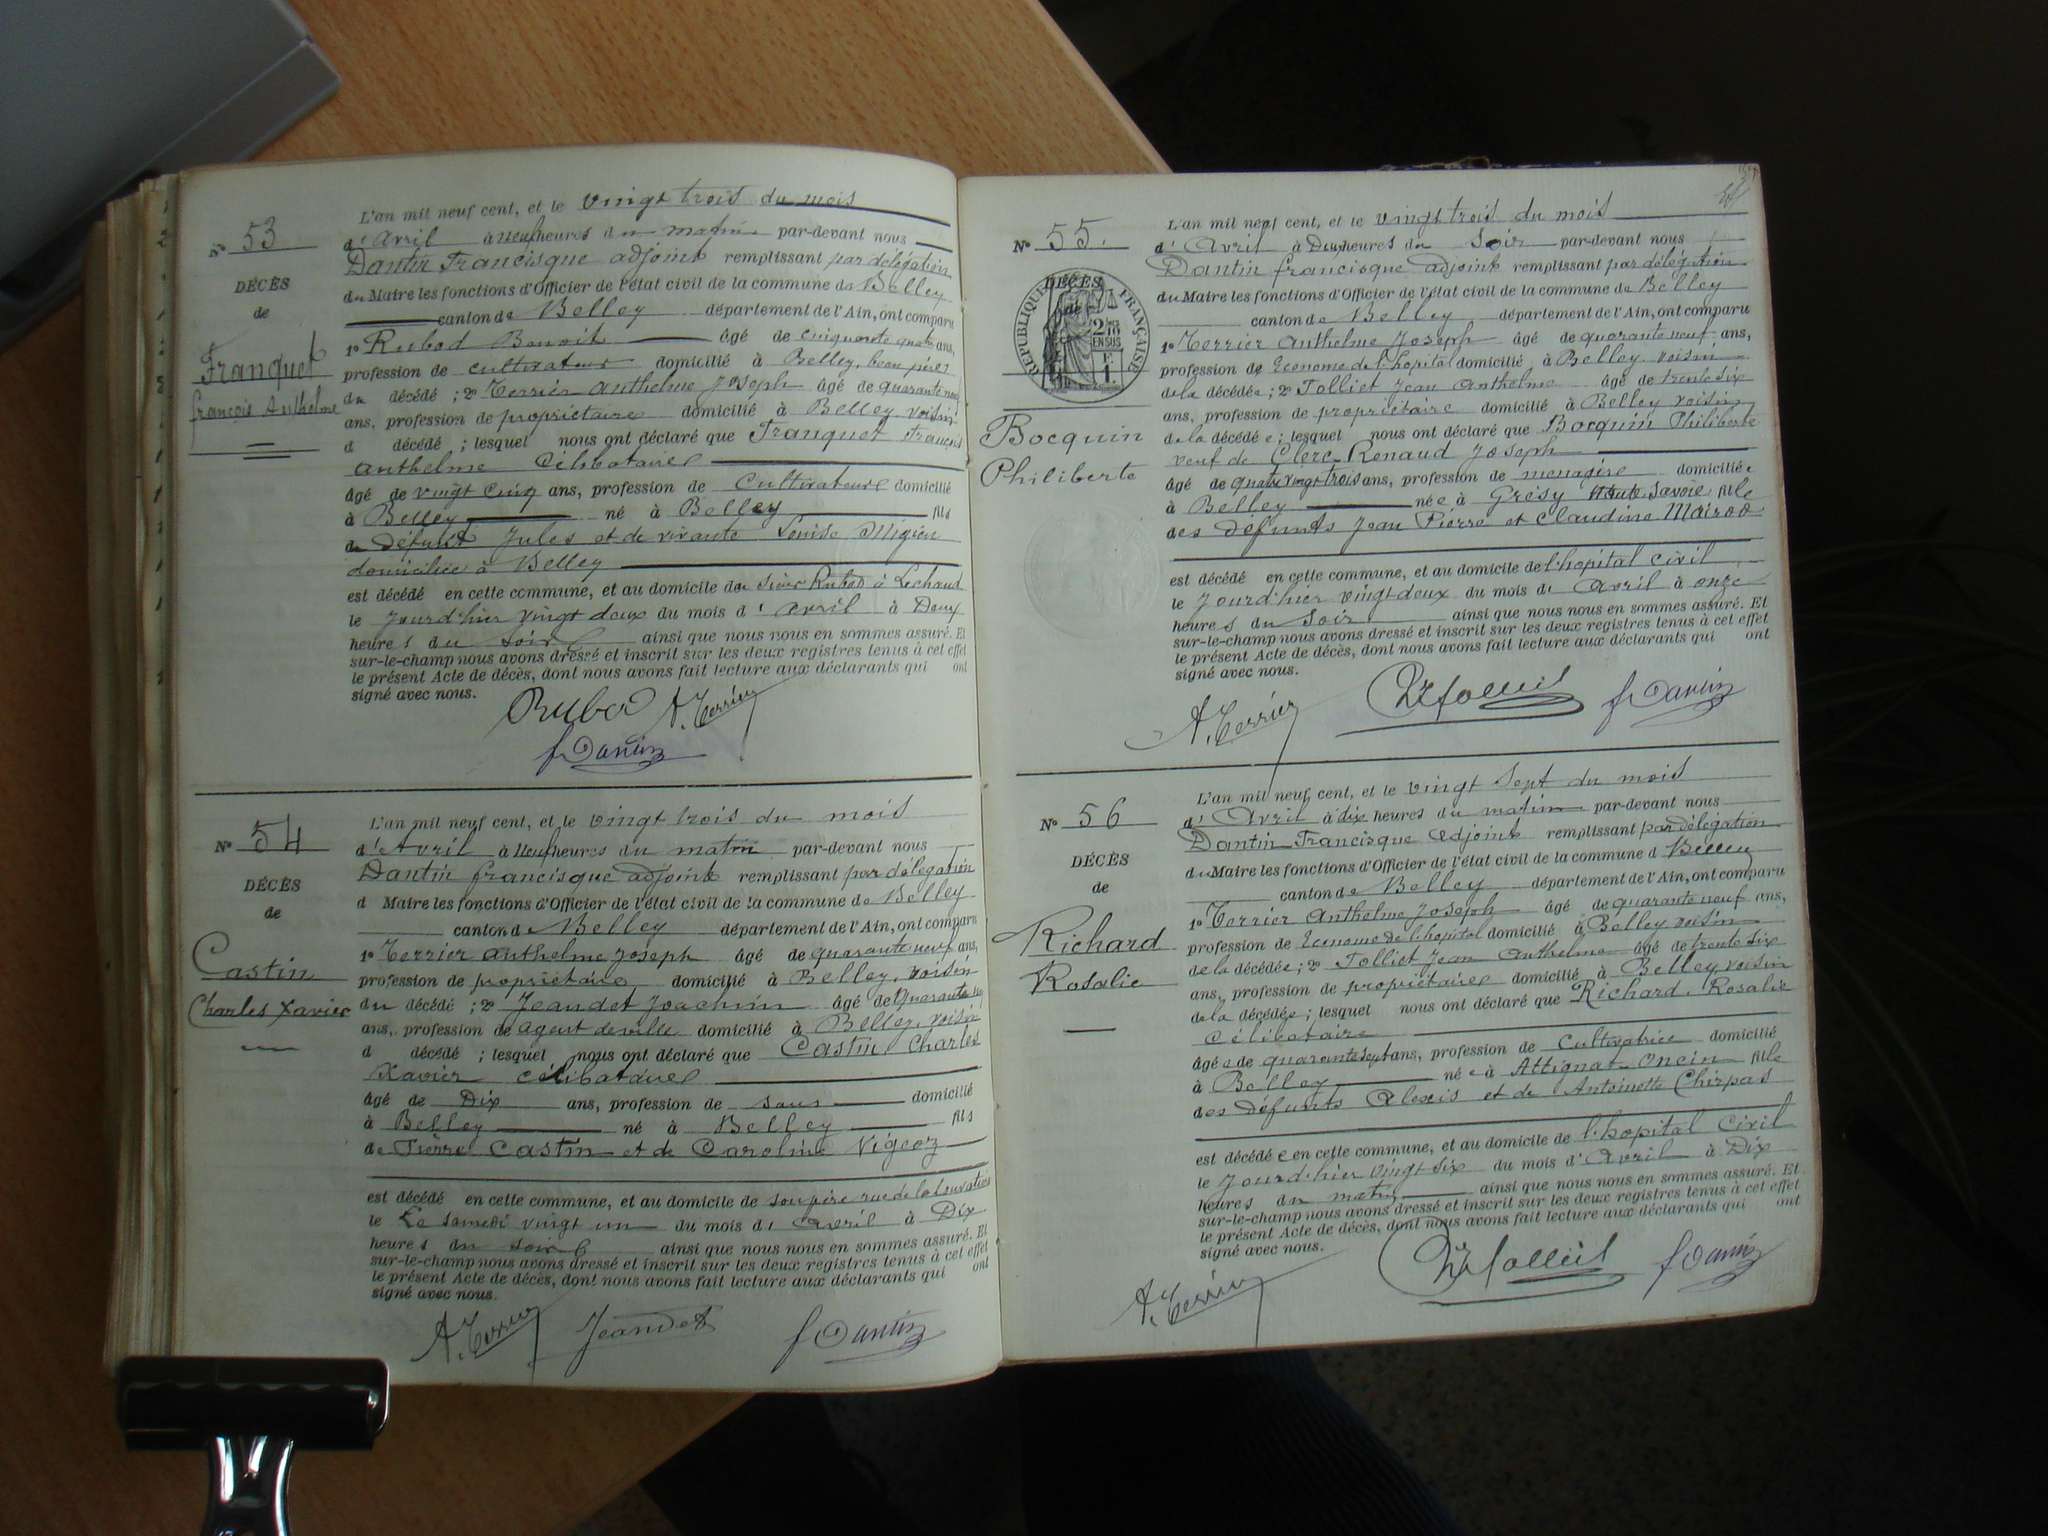 N° 53
DÉCÈS
de
Franquet
François Anthelme
L'an mil neuf cent, et le vingt trois du mois
d'Avril à neuf heures du matin par-devant nous
Dantin Francisque adjoint remplissant par délégation
du Maire les fonctions d'Officier de l'état civil de la commune de Belley
canton de Belley département de l'Ain, ont comparu
1° Rubod Benoit âgé de cinquante quatre ans,
profession de cultivateur domicilié à Belley, beau père
du décédé ; 2° Terrier Anthelme Joseph âgé de quarante neuf
ans, profession de propriétaire domicilié à Belley voisin
d décédé ; lesquel nous ont déclaré que Franquet François
Anthelme Célibataire
âgé de vingt cinq ans, profession de Cultivateur domicilié
à Belley né à Belley fils
de Défunt Jules et de vivante Louise Migieu
domiciliée à Belley
est décédé en cette commune, et au domicile du sieur Rubod à Lechaud
le Jourd'hier vingt deux du mois d'avril à Deux
heures du soir ainsi que nous nous en sommes assuré. Et
sur-le-champ nous avons dressé et inscrit sur les deux registres tenus à cet effet
le présent Acte de décès, dont nous avons fait lecture aux déclarants qui ont
signé avec nous.
Rubod A. Terrier
f Dantin
N° 54
DÉCÈS
de
Castin
Charles Xavier
L'an mil neuf cent, et le vingt trois du mois
d'Avril à neuf heures du matin par-devant nous
Dantin francisque adjoint remplissant par délégation
d Maire les fonctions d'Officier de l'état civil de la commune de Belley
canton de Belley département de l'Ain, ont comparu
1° Terrier Anthelme Joseph âgé de quarante neuf ans,
profession de propriétaire domicilié à Belley, voisin
du décédé ; 2° Jeandet Joachim âgé de Quarante
ans, profession de agent de ville domicilié à Belley, voisin
d décédé ; lesquel nous ont déclaré que Castin Charles
Xavier célibataire
âgé de Dix ans, profession de sans domicilié
à Belley né à Belley fils
de Pierre Castin et de Caroline Vigeoz
est décédé en cette commune, et au domicile de son père rue de la
le Le samedi vingt un du mois d'avril à Dix
heures du soir ainsi que nous nous en sommes assuré. Et
sur-le-champ nous avons dressé et inscrit sur les deux registres tenus à cet effet
le présent Acte de décès, dont nous avons fait lecture aux déclarants qui ont
signé avec nous.
A. Terrier Jeandet f Dantin
N° 55.
DÉCÈS
de
RÉPUBLIQUE FRANÇAISE
2/10 EN SUS
Bocquin
Philiberte
L'an mil neuf cent, et le vingt trois du mois
d'Avril à Deux heures du Soir par-devant nous
Dantin francisque adjoint remplissant par délégation
du Maire les fonctions d'Officier de l'état civil de la commune de Belley
canton de Belley département de l'Ain, ont comparu
1° Terrier Anthelme Joseph âgé de quarante neuf ans,
profession de Econome de l'hopital domicilié à Belley voisin
de la décédée ; 2° Tolliet Jean Anthelme âgé de trente six
ans, profession de propriétaire domicilié à Belley voisin
de la décédée ; lesquel nous ont déclaré que Bocquin Philiberte
veuf de Clerc-Renaud Joseph
âgé de quatre vingt trois ans, profession de menagère domiciliée
à Belley née à Grésy Haute Savoie fille
des défunts Jean Pierre et Claudine
est décédé en cette commune, et au domicile de l'hopital civil
le Jourd'hier vingt deux du mois d avril à onze
heures du soir ainsi que nous nous en sommes assuré. Et
sur-le-champ nous avons dressé et inscrit sur les deux registres tenus à cet effet
le présent Acte de décès, dont nous avons fait lecture aux déclarants qui ont
signé avec nous.
A. Terrier Tolliet f Dantin
N° 56
DÉCÈS
de
Richard
Rosalie
L'an mil neuf cent, et le vingt sept du mois
d'Avril à dix heures du matin par-devant nous
Dantin Francisque adjoint remplissant par délégation
du Maire les fonctions d'Officier de l'état civil de la commune d Belley
canton de Belley département de l'Ain, ont comparu
1° Terrier Anthelme Joseph âgé de quarante neuf ans,
profession de Econome de l'hopital domicilié à Belley voisin
de la décédée ; 2° Tolliet Jean Anthelme âgé de trente six
ans, profession de propriétaire domicilié à Belley voisin
de la décédée ; lesquel nous ont déclaré que Richard Rosalie
célibataire
âgée de quarante sept ans, profession de Cultivatrice domicilié
à Belley née à Attignat-Oncin fille
des Défunts Alexis et de Antoinette Chirpas
est décédée en cette commune, et au domicile de l'hopital Civil
le Jourd'hier vingt six du mois d'avril à Dix
heures du matin ainsi que nous nous en sommes assuré. Et
sur-le-champ nous avons dressé et inscrit sur les deux registres tenus à cet effet
le présent Acte de décès, dont nous avons fait lecture aux déclarants qui ont
signé avec nous.
A. Terrier Tolliet f Dantin